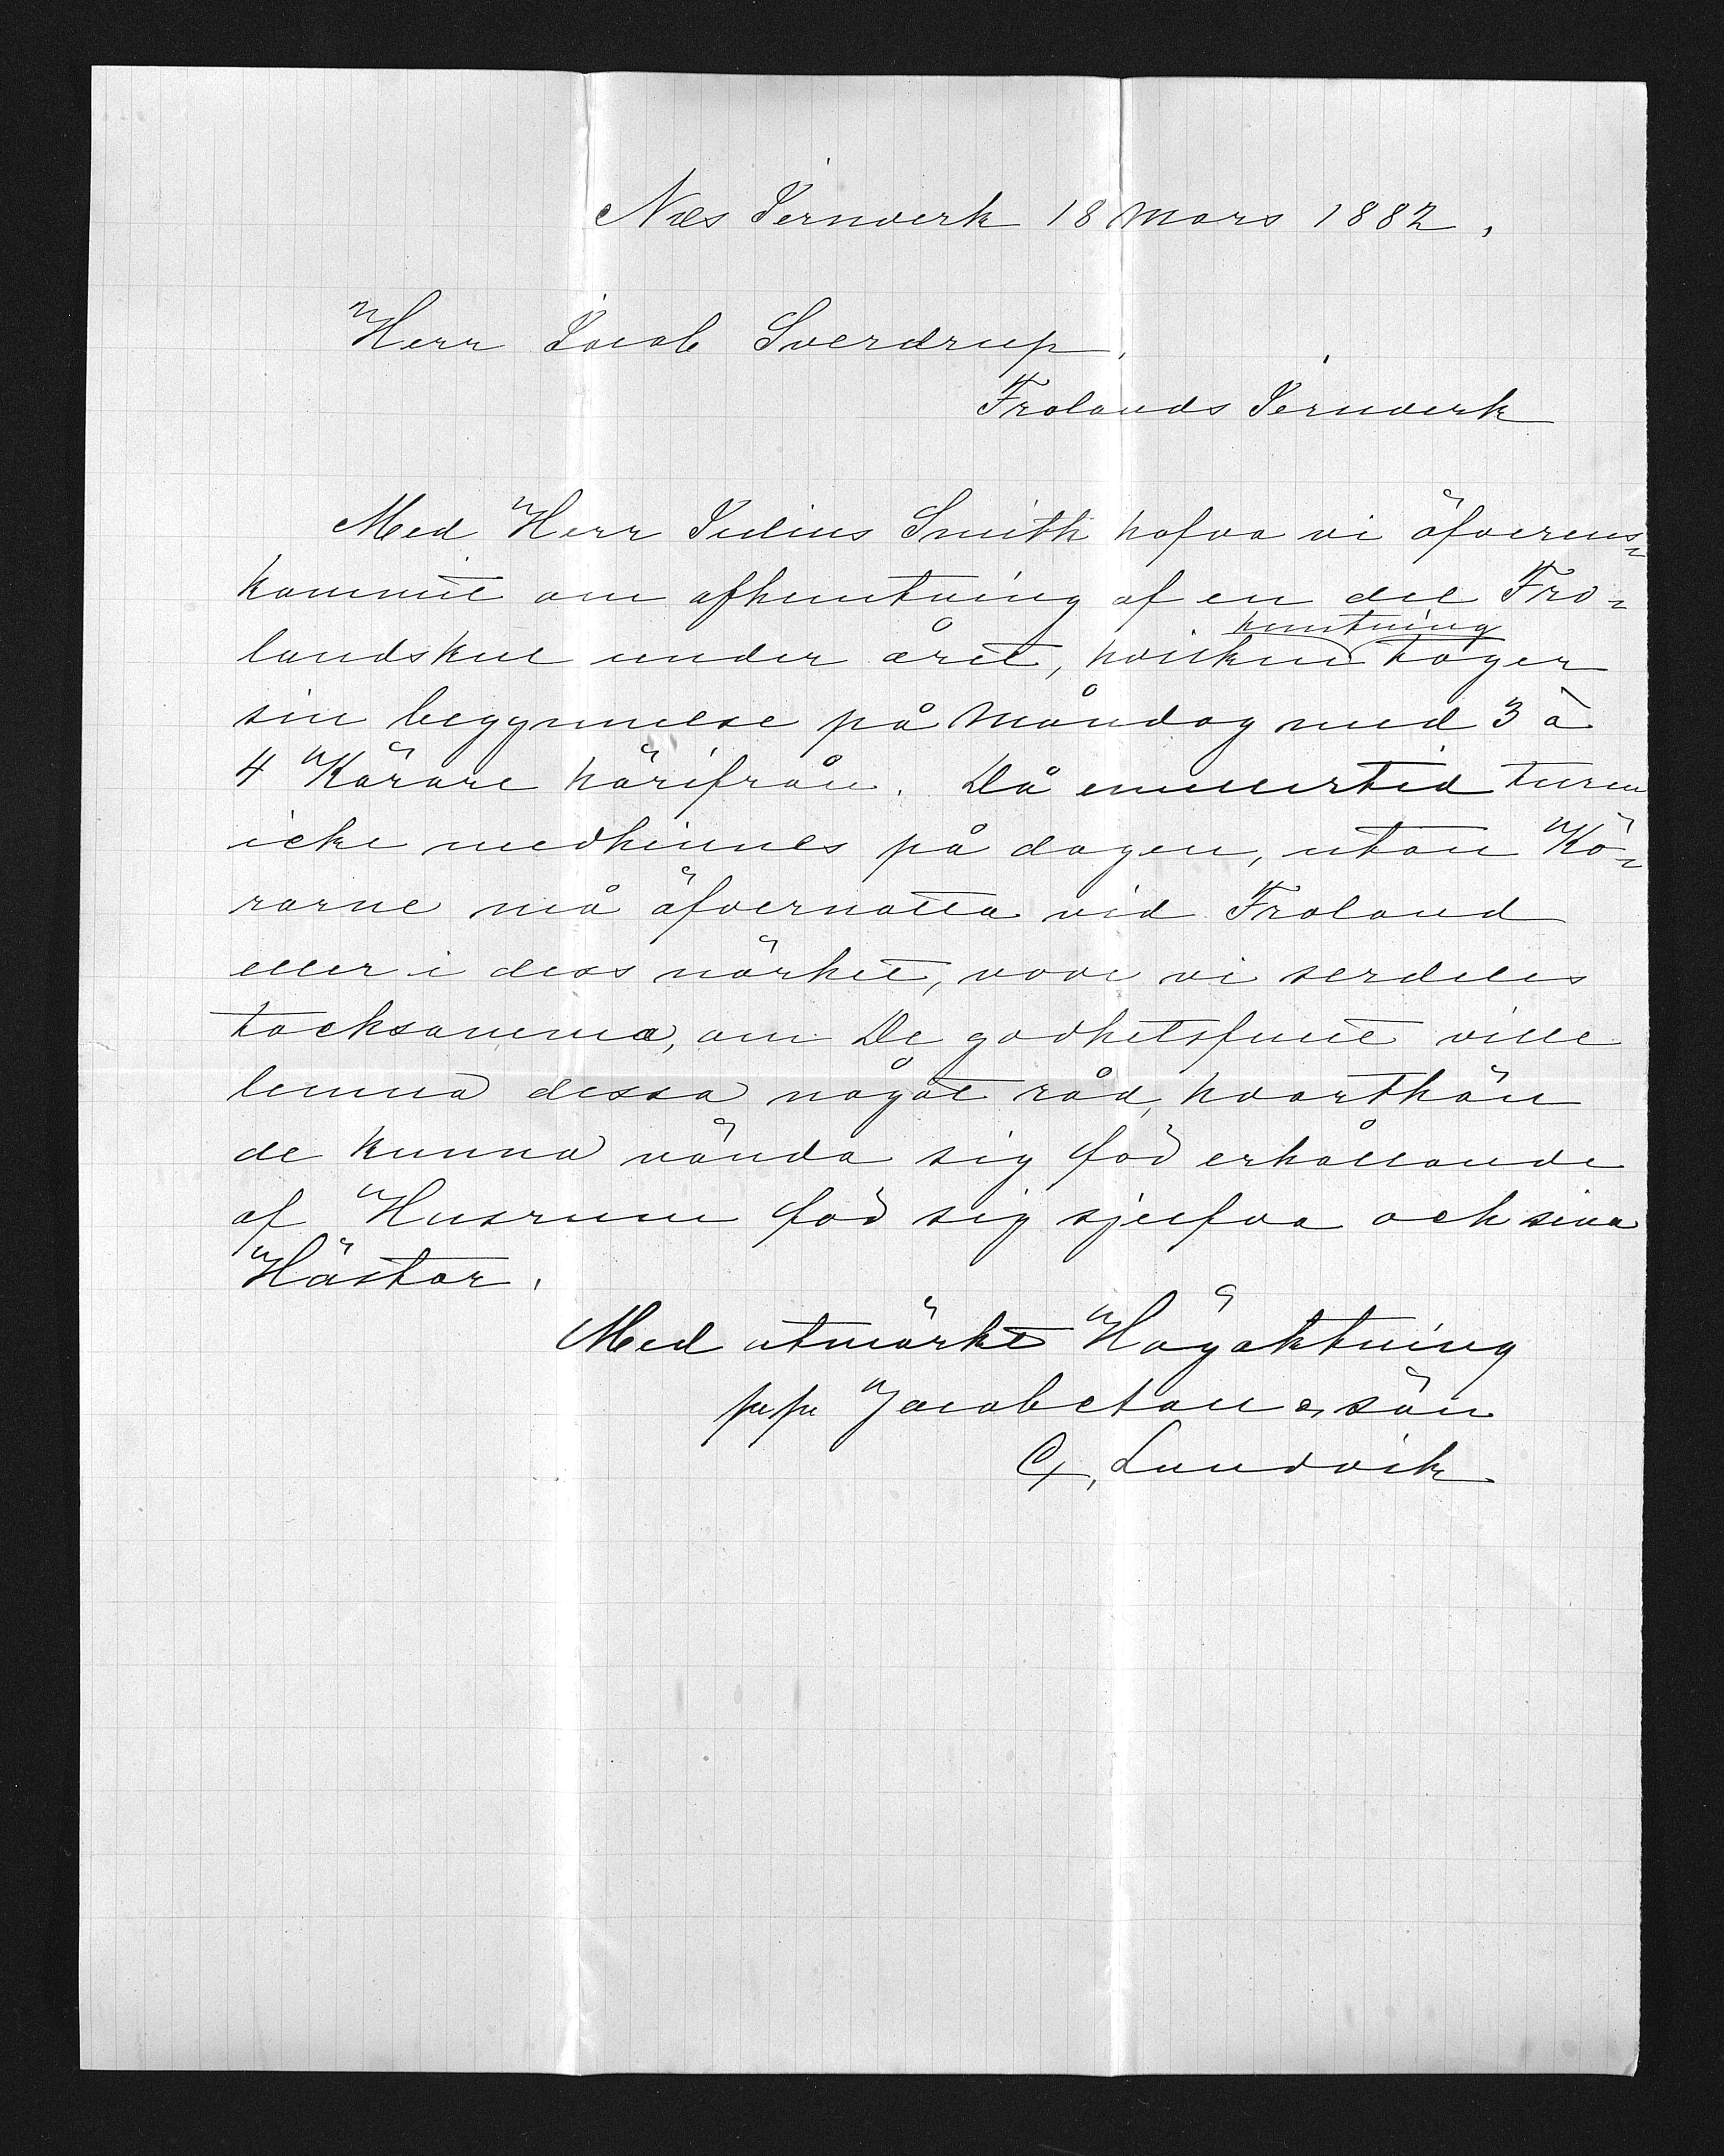 Næs Jernverk 18 Mars 1882.
Herr Jacob Sverdrup,
Frolands Jernverk
Med Herr Julius Smith hafva vi öfverens-
kommit om afhemtning af en del Fro-
hemtning
landskul under året, hvilken tager
sin beggynnelse på Måndag med 3 à
4 Körare härifrån. Då emellertid turen
icke medhinnes på dagen, utan Kö-
rarne må öfvernatta vid Froland
eller i dess närhet, vore vi serdeles
tacksamma, om De godhetsfullt ville
lemna dessa något råd, hvarthän
de kunna vända sig för erhållande
af Husrum för sig sjelfva och sina
Hästar.
Med utmärkt Högaktning
pr pr Jacob Aall & sön
C. Lundvik